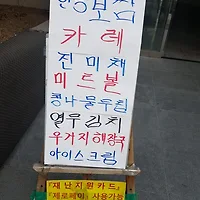 보쌈
카레
진미채
미트볼
콩나물무침
열무김치
우거지해장국
아이스크림
"재난지원카드"
"제로페이" 사용가능